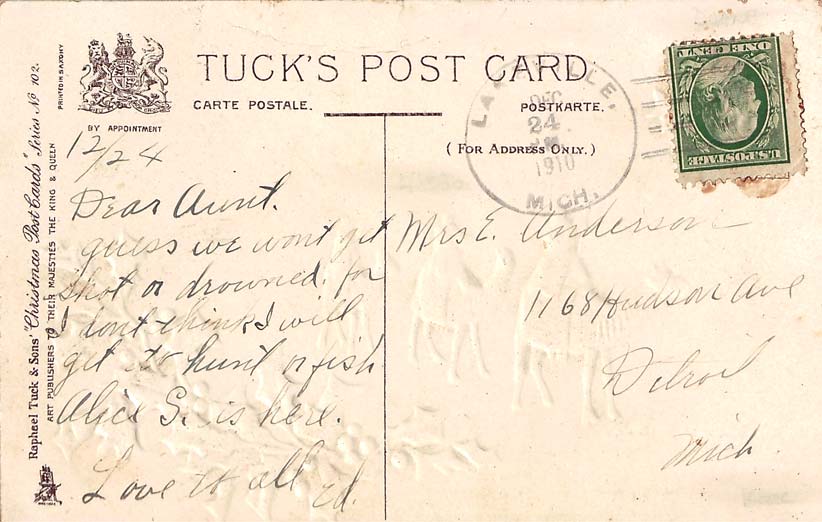 TUCK'S POST CARD
CARTE POSTALE.
POSTKARTE.
BY APPOINTMENT
(FOR ADDRESS ONLY.)
PRINTED IN SAXONY
Raphael Tuck & Sons' "Christmas Post Cards" Series No 102.
ART PUBLISHERS TO THEIR MAJESTIES THE KING & QUEEN
DEC
24
1910
MICH.
U.S. POSTAGE
ONE CENT
12/24
Dear Aunt.
guess we wont get
shot or drowned. for
I dont think I will
get to hunt or fish
Alice S. is here.
Love to all
Ed.
Mrs E. Anderson
1168 Hudson Ave
Detroit
Mich